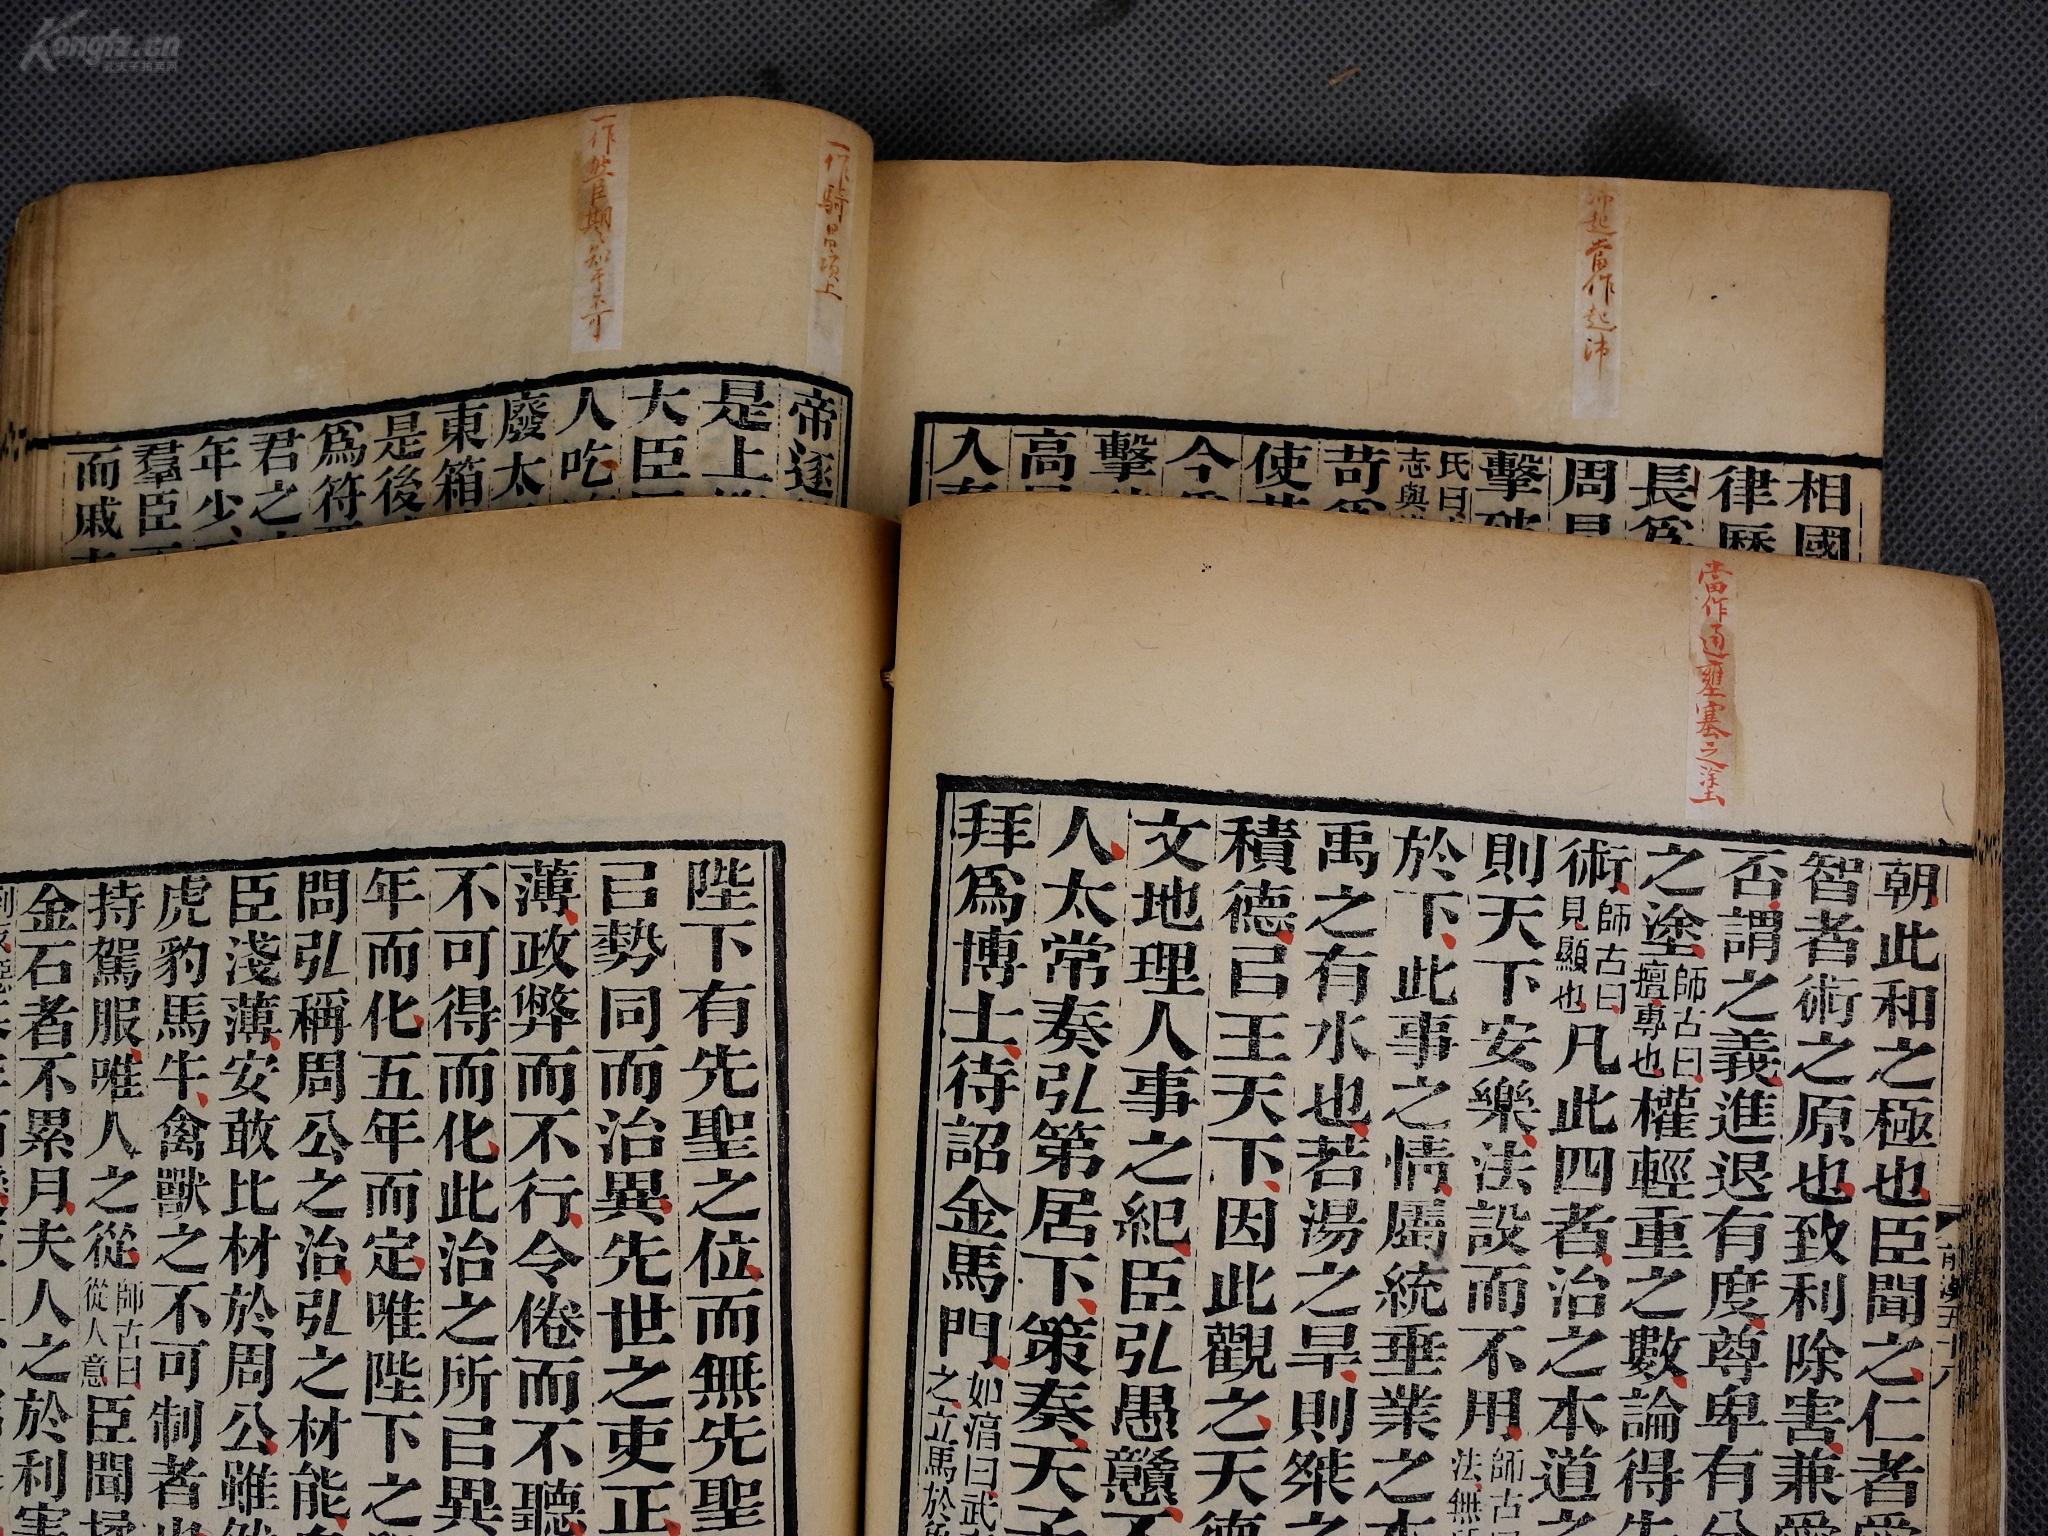 Kongfz.cn
孔夫子拍卖网
沛起當作起沛
相國
律曆
長爲
周昌
擊破
氏曰
志與
苛爲
使
今
擊
高
入
一作騎昌項上
一作然臣期期知其不可
帝遂
是上
大臣
人吃
廢太
東箱
是後
爲符
君之
年少
羣臣
而戚
當作通壅塞之塗
朝此和之極也臣聞之仁者
智者術之原也致利除害兼愛
否謂之義進退有度尊卑有分
之塗師古曰擅專也權輕重之數論得失
術師古曰見顯也凡此四者治之本道之
則天下安樂法設而不用師古曰法無所
於下此事之情屬統垂業之本
禹之有水也若湯之旱則桀之
積德㠯王天下因此觀之天德
文地理人事之紀臣弘愚戇不
人太常奏弘第居下策奏天子
拜爲博士待詔金馬門如淳曰武之立馬於
前漢五十八
陛下有先聖之位而無先聖
㠯勢同而治異先世之吏正
薄政弊而不行令倦而不聽
不可得而化此治之所㠯異
年而化五年而定唯陛下之
問弘稱周公之治弘之材能
臣淺薄安敢比材於周公雖然
虎豹馬牛禽獸之不可制者也
持駕服唯人之從師古曰從人意臣聞揉
金石者不累月夫人之於利害